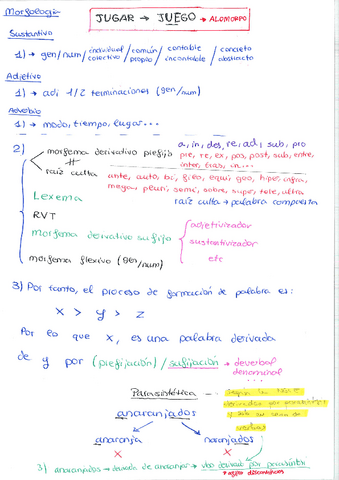 Morfología
JUGAR → JUEGO → ALOMORFO
Sustantivo
1) → gen/num/ individual/colectivo / común/propio / contable/incontable / concreto/abstracto
Adjetivo
1) → adj 1/2 terminaciones (gen/num)
Adverbio
1) → modo, tiempo, lugar...
2)
morfema derivativo prefijo
a, in, des, re, ad, sub, pro
pre, re, ex, pos, post, sub, entre,
inter, tras, in...
≠
raíz culta
ante, auto, bi, geo, equi, hiper, infra,
mega, pluri, semi, sobre, super, tele, ultra
raíz culta → palabra compuesta
Lexema
RVT
morfema derivativo sufijo
adjetivizador
sustantivizador
etc
morfema flexivo (gen/num)
3) Por tanto, el proceso de formación de palabra es:
x > y > z
Por lo que x, es una palabra derivada
de y por (prefijación) / sufijación → deverbal
denominal ...
Parasintética
según la NGLE
derivados por parasíntesis
anaranjados
anaranja
naranjados
X
X
3) anaranjados → derivado de anaranjar → vbo derivado por parasíntesis